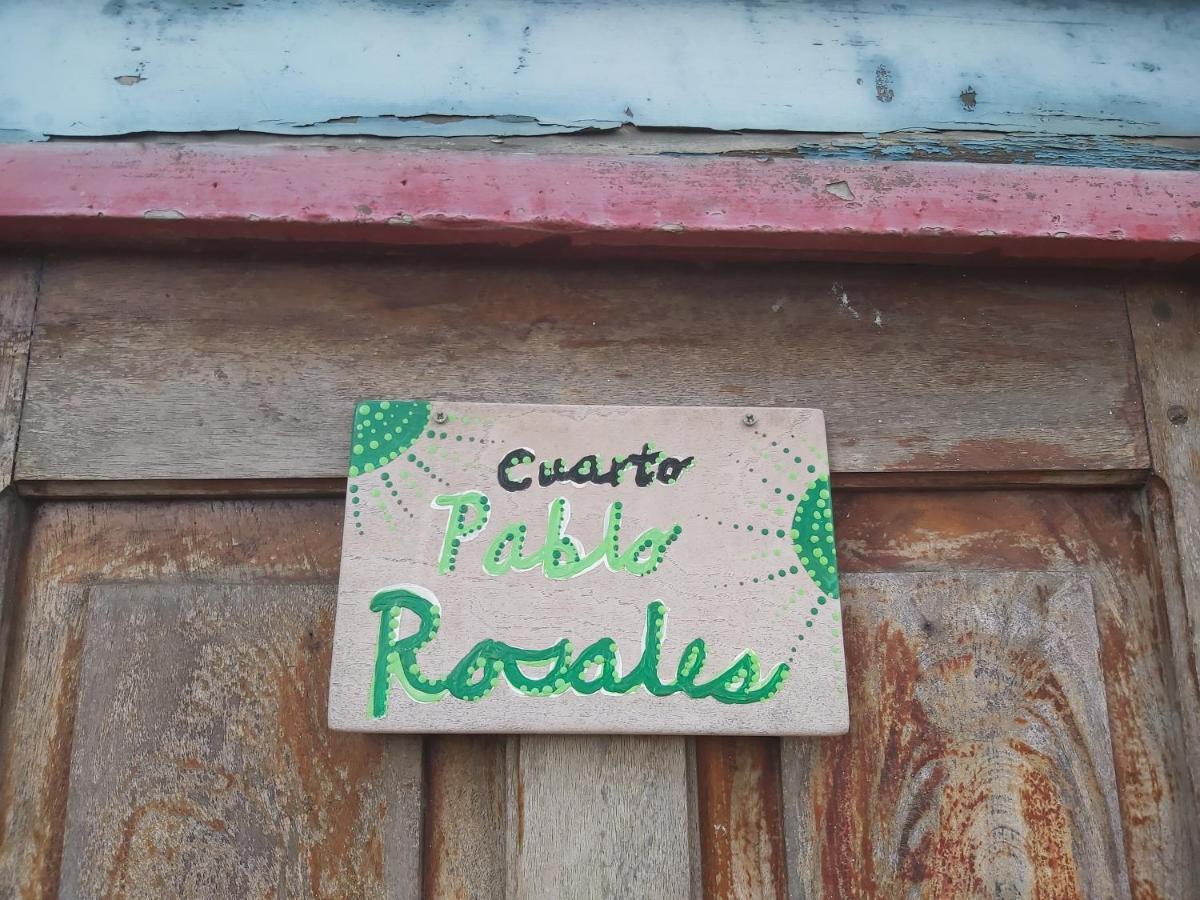 Cuarto
Pablo
Rosales